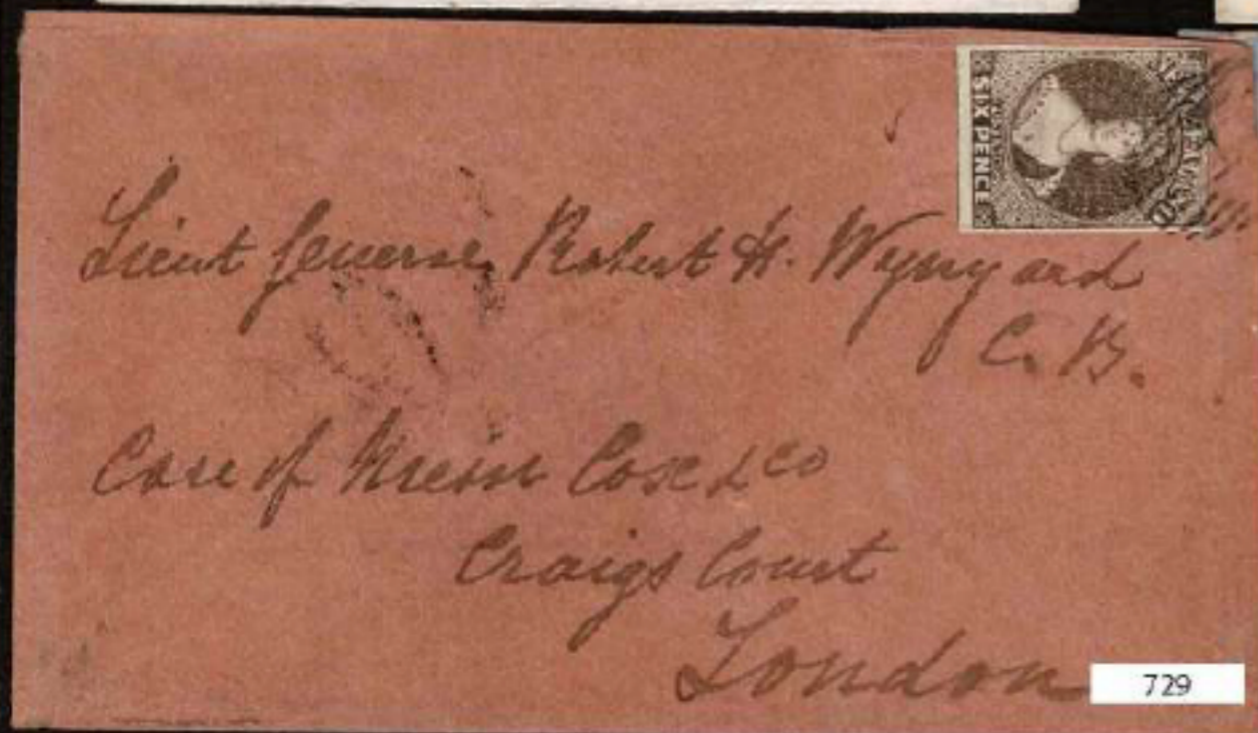 SIX PENCE
Lieut General Robert H. Wynyard
C. B.
Care of Messrs Cox & Co
Craigs Court
London
729